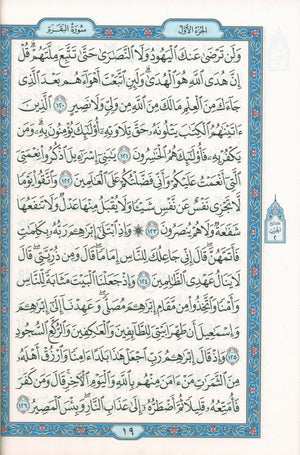 سورة البقرة
الجزء الأول
وَلَن تَرْضَىٰ عَنكَ ٱلْيَهُودُ وَلَا ٱلنَّصَٰرَىٰ حَتَّىٰ تَتَّبِعَ مِلَّتَهُمْ ۗ قُلْ
إِنَّ هُدَى ٱللَّهِ هُوَ ٱلْهُدَىٰ ۗ وَلَئِنِ ٱتَّبَعْتَ أَهْوَآءَهُم بَعْدَ ٱلَّذِى
جَآءَكَ مِنَ ٱلْعِلْمِ ۙ مَا لَكَ مِنَ ٱللَّهِ مِن وَلِىٍّ وَلَا نَصِيرٍ ١٢٠ ٱلَّذِينَ
ءَاتَيْنَٰهُمُ ٱلْكِتَٰبَ يَتْلُونَهُۥ حَقَّ تِلَاوَتِهِۦٓ أُو۟لَٰٓئِكَ يُؤْمِنُونَ بِهِۦ ۗ وَمَن
يَكْفُرْ بِهِۦ فَأُو۟لَٰٓئِكَ هُمُ ٱلْخَٰسِرُونَ ١٢١ يَٰبَنِىٓ إِسْرَٰٓءِيلَ ٱذْكُرُوا۟ نِعْمَتِىَ
ٱلَّتِىٓ أَنْعَمْتُ عَلَيْكُمْ وَأَنِّى فَضَّلْتُكُمْ عَلَى ٱلْعَٰلَمِينَ ١٢٢ وَٱتَّقُوا۟ يَوْمًا
لَّا تَجْزِى نَفْسٌ عَن نَّفْسٍ شَيْـًٔا وَلَا يُقْبَلُ مِنْهَا عَدْلٌ وَلَا تَنفَعُهَا
شَفَٰعَةٌ وَلَا هُمْ يُنصَرُونَ ١٢٣ ۞ وَإِذِ ٱبْتَلَىٰٓ إِبْرَٰهِۦمَ رَبُّهُۥ بِكَلِمَٰتٍ
فَأَتَمَّهُنَّ ۖ قَالَ إِنِّى جَاعِلُكَ لِلنَّاسِ إِمَامًا ۖ قَالَ وَمِن ذُرِّيَّتِى ۖ قَالَ
لَا يَنَالُ عَهْدِى ٱلظَّٰلِمِينَ ١٢٤ وَإِذْ جَعَلْنَا ٱلْبَيْتَ مَثَابَةً لِّلنَّاسِ
وَأَمْنًا وَٱتَّخِذُوا۟ مِن مَّقَامِ إِبْرَٰهِۦمَ مُصَلًّى ۖ وَعَهِدْنَآ إِلَىٰٓ إِبْرَٰهِۦمَ
وَإِسْمَٰعِيلَ أَن طَهِّرَا بَيْتِىَ لِلطَّآئِفِينَ وَٱلْعَٰكِفِينَ وَٱلرُّكَّعِ ٱلسُّجُودِ
١٢٥ وَإِذْ قَالَ إِبْرَٰهِۦمُ رَبِّ ٱجْعَلْ هَٰذَا بَلَدًا ءَامِنًا وَٱرْزُقْ أَهْلَهُۥ
مِنَ ٱلثَّمَرَٰتِ مَنْ ءَامَنَ مِنْهُم بِٱللَّهِ وَٱلْيَوْمِ ٱلْءَاخِرِ ۖ قَالَ وَمَن كَفَرَ
فَأُمَتِّعُهُۥ قَلِيلًا ثُمَّ أَضْطَرُّهُۥٓ إِلَىٰ عَذَابِ ٱلنَّارِ ۖ وَبِئْسَ ٱلْمَصِيرُ ١٢٦
١٩